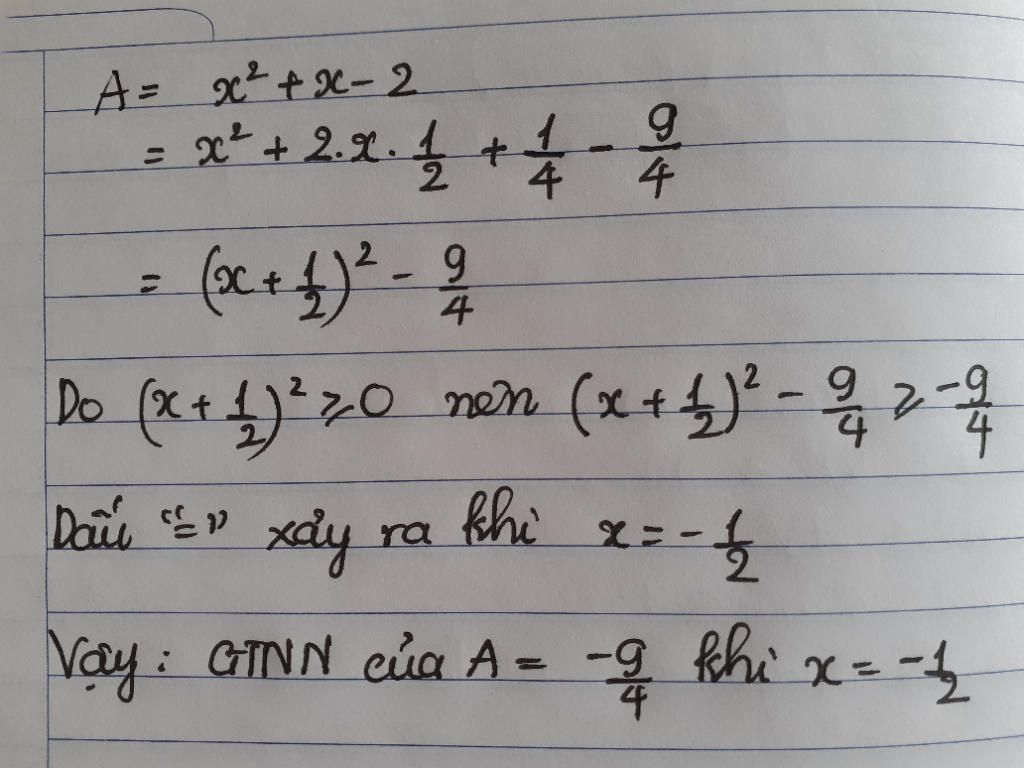 A = x² + x - 2
= x² + 2.x.1/2 + 1/4 - 9/4
= (x + 1/2)² - 9/4
Do (x + 1/2)² ⩾ 0 nên (x + 1/2)² - 9/4 ⩾ -9/4
Dấu "=" xảy ra khi x = -1/2
Vậy: GTNN của A = -9/4 khi x = -1/2